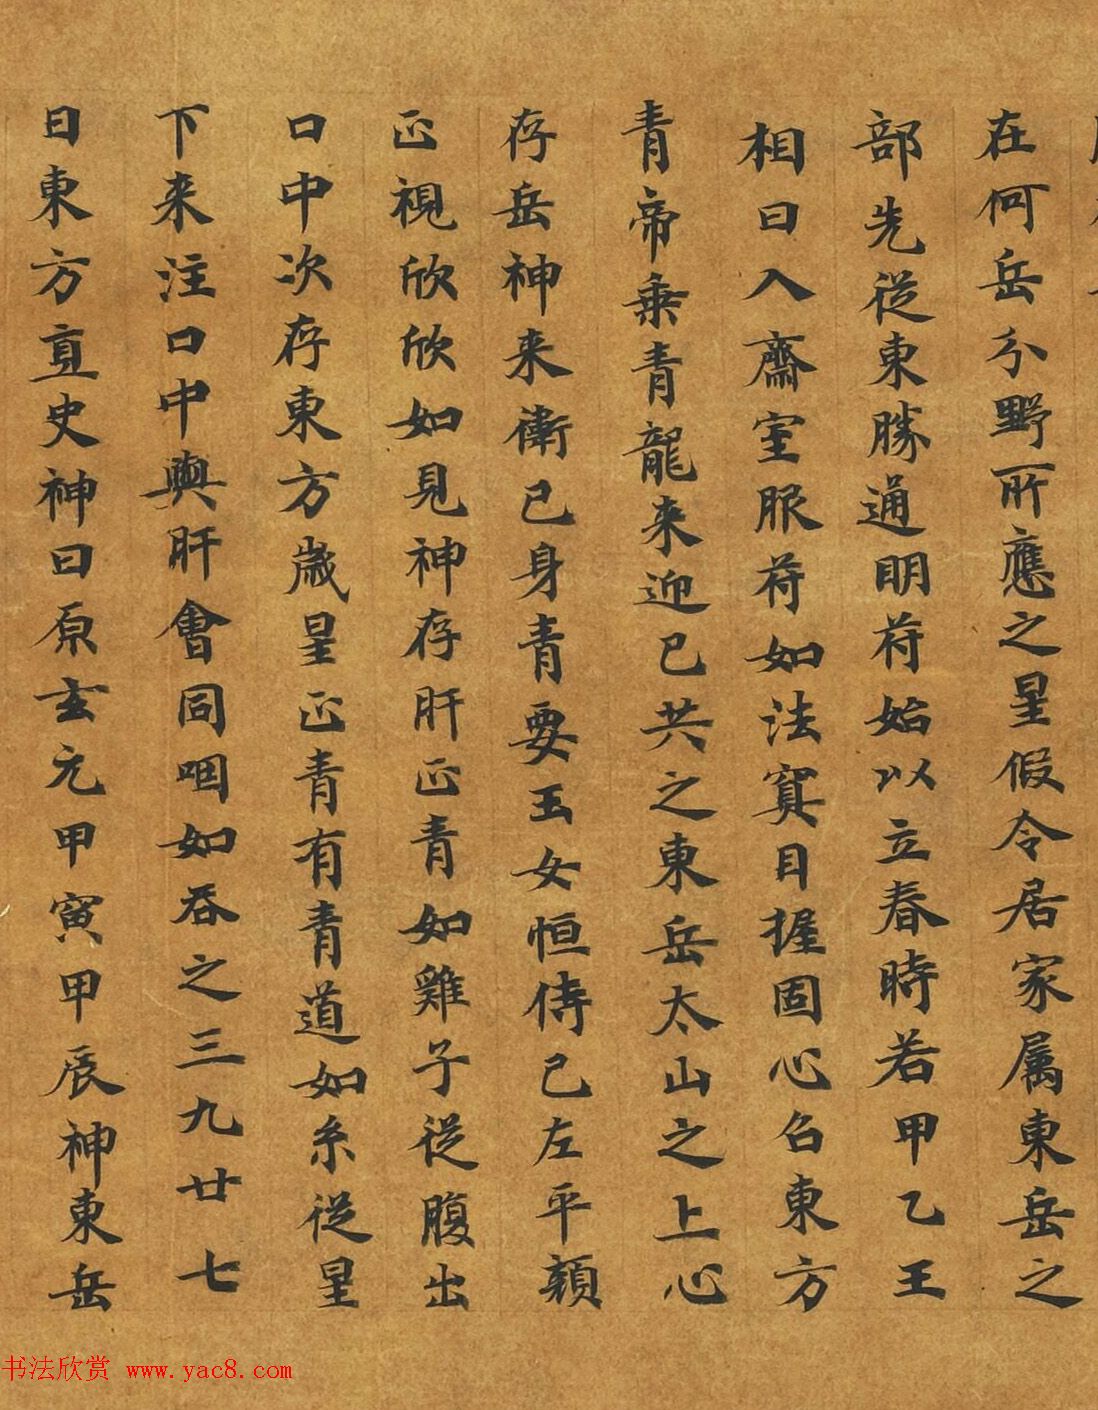 在何岳分野所應之星假令居家属東岳之
部先從東勝通明符始以立春時若甲乙王
相日入齋室服符如法寘目握固心召東方
青帝乗青龍来迎己共之東岳太山之上心
存岳神来衛己身青要玉女恒侍己左平顏
正視欣欣如見神存肝正青如雞子從腹出
口中次存東方歲星正青有青道如糸從星
下来注口中與肝會同咽如吞之三九廿七
日東方直史神曰原玄元甲寅甲辰神東岳
书法欣赏 www.yac8.com